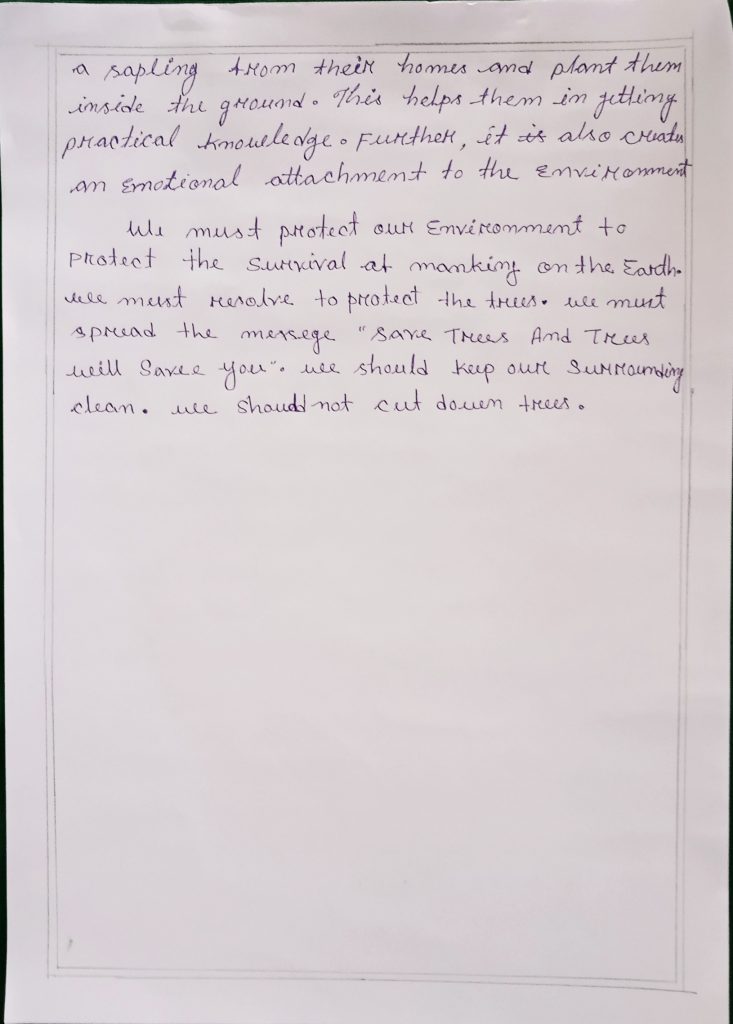 a sapling from their homes and plant them
inside the ground. This helps them in getting
practical knowledge. Further, it is also creates
an Emotional attachment to the Environment
We must protect our Environment to
Protect the Survival at manking on the Earth.
we must resolve to protect the trees. we must
spread the messege "Save Trees And Trees
will Savee you". we should keep our Surrounding
clean. we should not cut down trees.